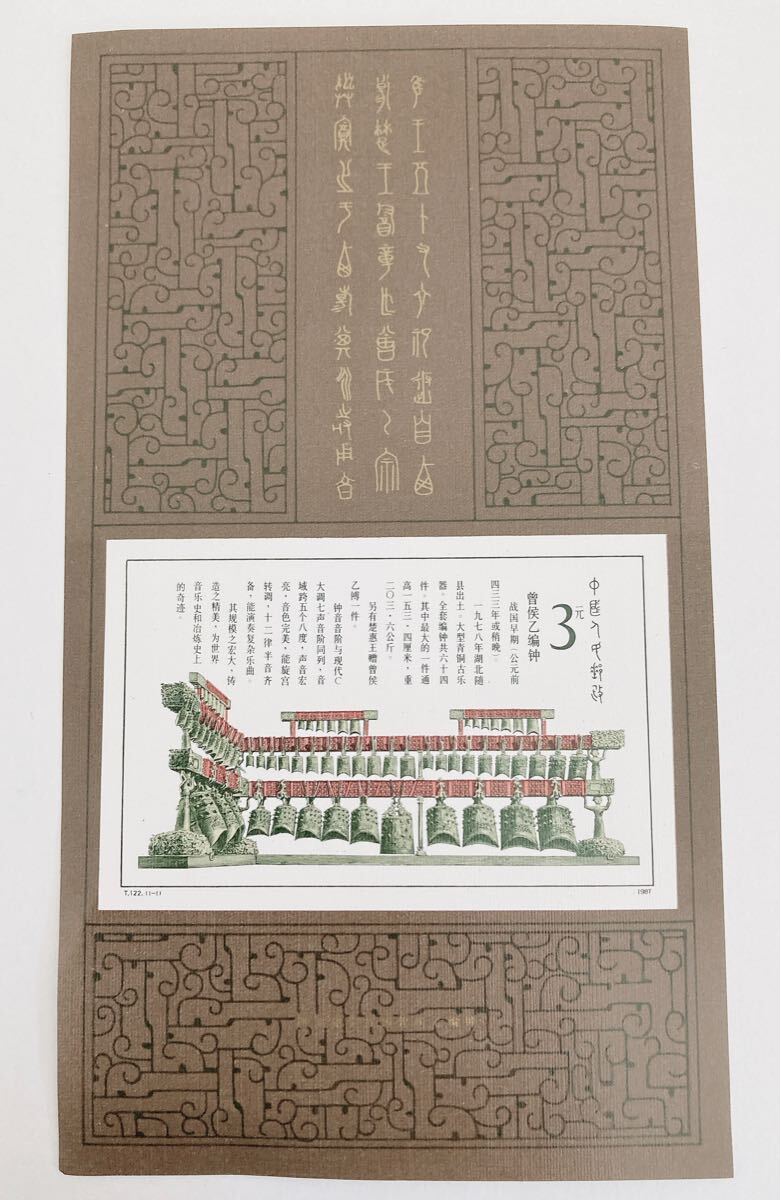 隹王五十又六祀返自西
楚王酓章乍曾侯乙宗
彝奠之于西其永用享
中國人民郵政
3元
曾侯乙编钟
战国早期（公元前
四三三年或稍晚）。
一九七八年湖北随
县出土，大型青铜古乐
器。全套编钟共六十四
件。其中最大的一件通
高一五三·四厘米，重
二〇三·六公斤。
另有楚惠王赠曾侯
乙镈一件。
钟音音阶与现代C
大调七声音阶同列，音
域跨五个八度，声音宏
亮，音色完美，能旋宫
转调，十二律半音齐
备，能演奏复杂乐曲。
其规模之宏大，铸
造之精美，为世界
音乐史和冶炼史上
的奇迹。
T.122.(1-1)
1987